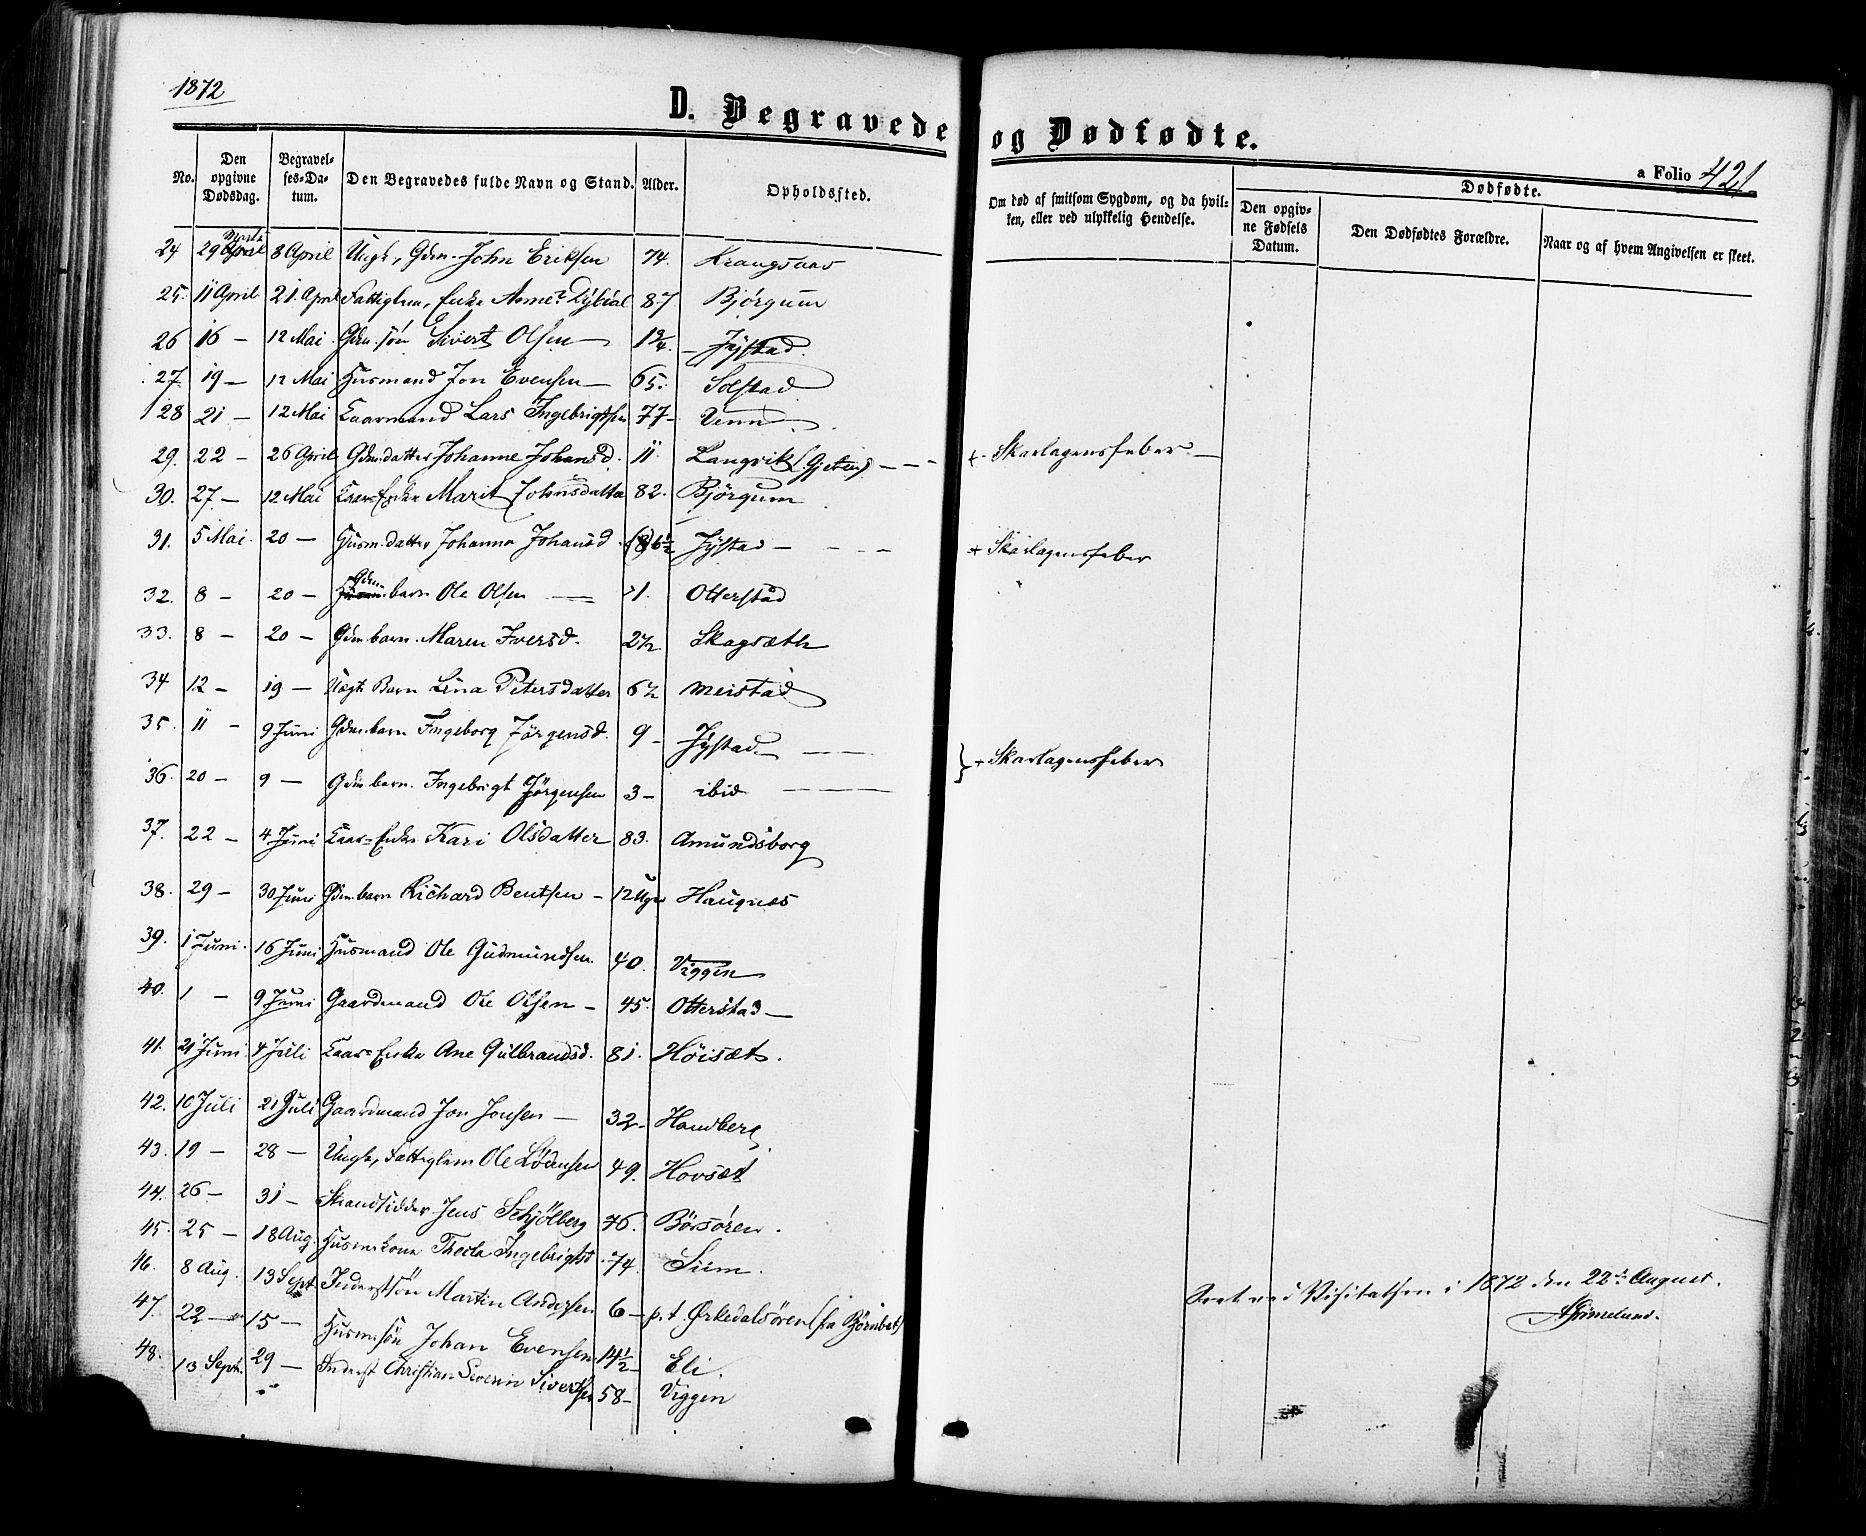 1872
D. Begravede og Dødfødte.
a Folio 421
No. | Den opgivne Dødsdag. | Begravelses-Datum. | Den Begravedes fulde Navn og Stand. | Alder. | Opholdssted. | Om død af smitsom Sygdom, og da hvilken, eller ved ulykkelig Hendelse. | Dødfødte.
Den opgivne Fødsels Datum. | Den Dødfødtes Forældre. | Naar og af hvem Angivelsen er skeet.
24 29 April 8 April Ungk, Gdm. John Eriksen 74.
25. 11 April 21. April Fattiglem, Enke 87 Bjørgum
26 16 — 12 Mai Gdm. søn Sivert Olsen — 1 3/4. Jystad.
27. 19 — 12 Mai Husmand Jon Evensen — 65. Solstad
28 21 — 12 Mai Kaarmand Lars Ingebrigtsen 77 - Venn
29. 22 — 26 April Gdm. datter Johanne Johansd. 11. Langvik (Gjeten) — — + Skarlagensfeber —
30. 27. — 12 Mai Kaar-Enke Marit Johnsdatter 82. Bjørgum
31. 5 Mai. 20 — Husm. datter Johanna Johansd. (8) 6 1/2 Jystad — — — + Skarlagensfeber
32. 8 — 20 — Gdm. barn Ole Olsen — 1. Otterstad
33. 8 — 20 — Gdm. barn. Maren Iversd. 2 1/2 Skagsæth
34 12 — 19 — Lægds Barn Lina Petersdatter 6 1/2 Meistad
35. 11 - 9 Juni Gdm. barn Ingeborg Jørgensd. 9 - Jystad — — } + Skarlagensfeber
36. 20 — 9 — Gdm. barn. Ingebrigt Jørgensen 3 - ibid — —
37. 22 — 4 Juni Kaar-Enke Kari Olsdatter 83. Amundsborg
38. 29 — 30 Juni Gdm. barn Richard Bentsen — 12 Uger Haugnes
39. 1 Juni. 16 Juni Husmand Ole Gudmundsen. 40. Viggen
40. 1 — 9 Juni Gaardmand Ole Olsen — 45. Otterstad —
41. 21 Juni 4 Juli Kaar-Enke Ane Gulbrandsd. 81. Høisæt.
42. 10 Juli 21 Juli Gaardmand Jon Jonsen — 32 - Handberg
43. 19 — 28 — Ungk, Fattiglem Ole 49. Hovsæt
44. 26 — 31 — Strandsidder Jens Schjølberg 76. Børsøren.
45. 25 — 18 Aug. Husm. kone Thecla Ingebrigtsd. 74. Siim.
46. 8 Aug. 13 Sept. Inderstsøn Martin Andersen 6 — p. t. Ørkedalsøren (fra Børnbet)
47. 22 — 15 — Husm. søn Johan Evensen 14 1/2 Eli.
48. 13 Sept. 29 — Inderst Christian Severin Sivertsen 58 — Viggen
Seet ved Visitatsen i 1872 den 22de August.
AGrimelund.